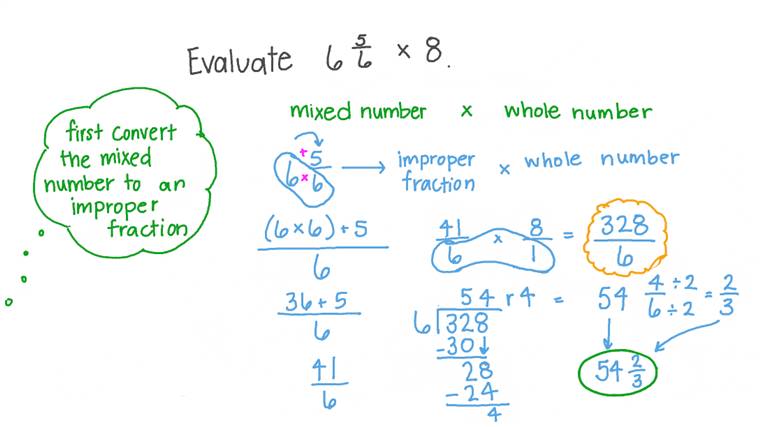 Evaluate 6 5/6 × 8.
mixed number × whole number
first convert
the mixed
number to an
improper
fraction
6 × 6 + 5 → improper fraction × whole number
(6 × 6) + 5 / 6
41/6 × 8/1 = 328/6
36 + 5 / 6
54 r 4 = 54 4 ÷ 2 / 6 ÷ 2 = 2/3
6 ) 328
- 30 ↓
28
- 24
4
41/6
54 2/3